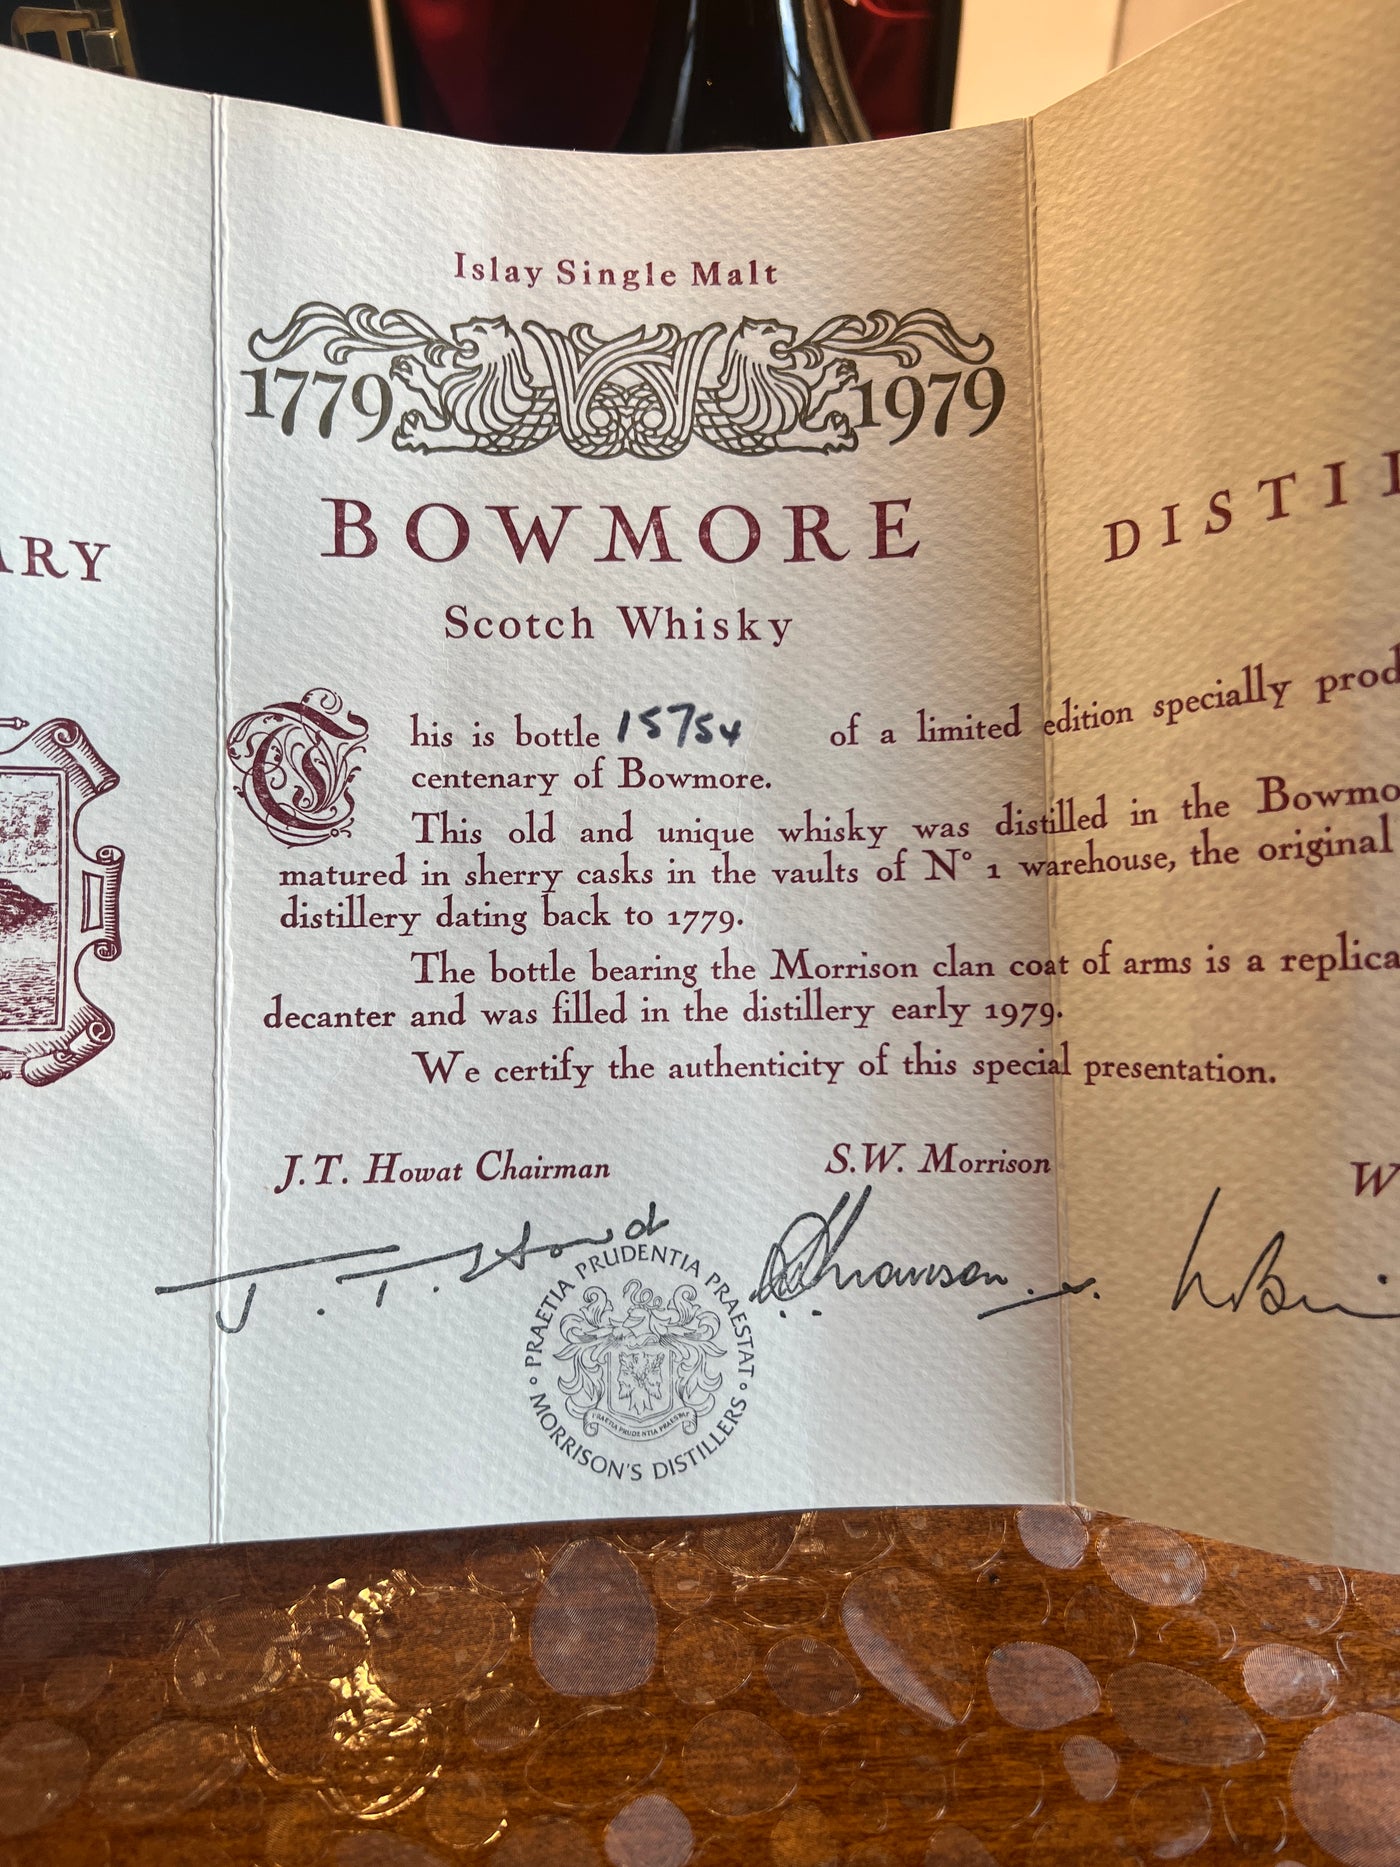 Islay Single Malt
1779 1979
ARY
BOWMORE
DISTIL
Scotch Whisky
This is bottle 15754 of a limited edition specially prod
centenary of Bowmore.
This old and unique whisky was distilled in the Bowmo
matured in sherry casks in the vaults of Nº 1 warehouse, the original
distillery dating back to 1779.
The bottle bearing the Morrison clan coat of arms is a replica
decanter and was filled in the distillery early 1979.
We certify the authenticity of this special presentation.
J.T. Howat Chairman S.W. Morrison W
J. T. Howat
PRAETIA PRUDENTIA PRAESTAT
PRAETIA PRUDENTIA PRAESTAT
MORRISON'S DISTILLERS